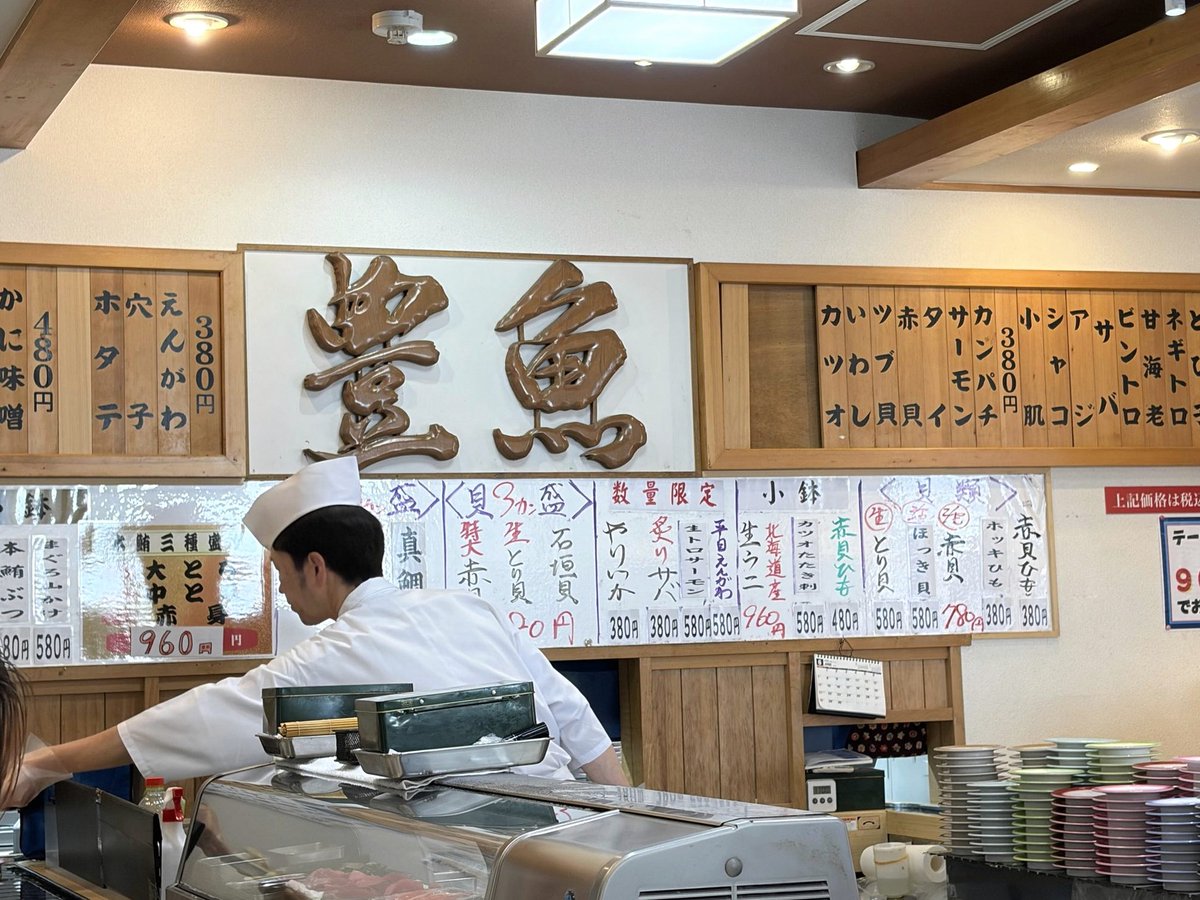 豊魚
380円
えんがわ
穴子
ホタテ
480円
かに味噌
ネギトロ
甘海老
ビントロ
サバ
アジ
シャコ
小肌
380円
カンパチ
サーモン
タイ
赤貝
ツブ貝
いわし
カツオ
鉢
まぐろ山かけ
580円
本鮪ぶつ
鮪三種盛
赤身
中とろ
大とろ
960円
盃
真鯛
〈貝3カン盃〉
石垣貝
生とり貝
数量限定
平目えんがわ
580円
生トロサーモン
580円
炙りサバ
380円
やりいか
380円
小鉢
赤貝ひも
480円
カツオたたき刺
580円
北海道産
生ウニ
960円
〈貝類〉
赤貝ひも
380円
ホッキひも
380円
活赤貝
780円
活ほっき貝
580円
生とり貝
580円
上記価格は税込
テー
でお